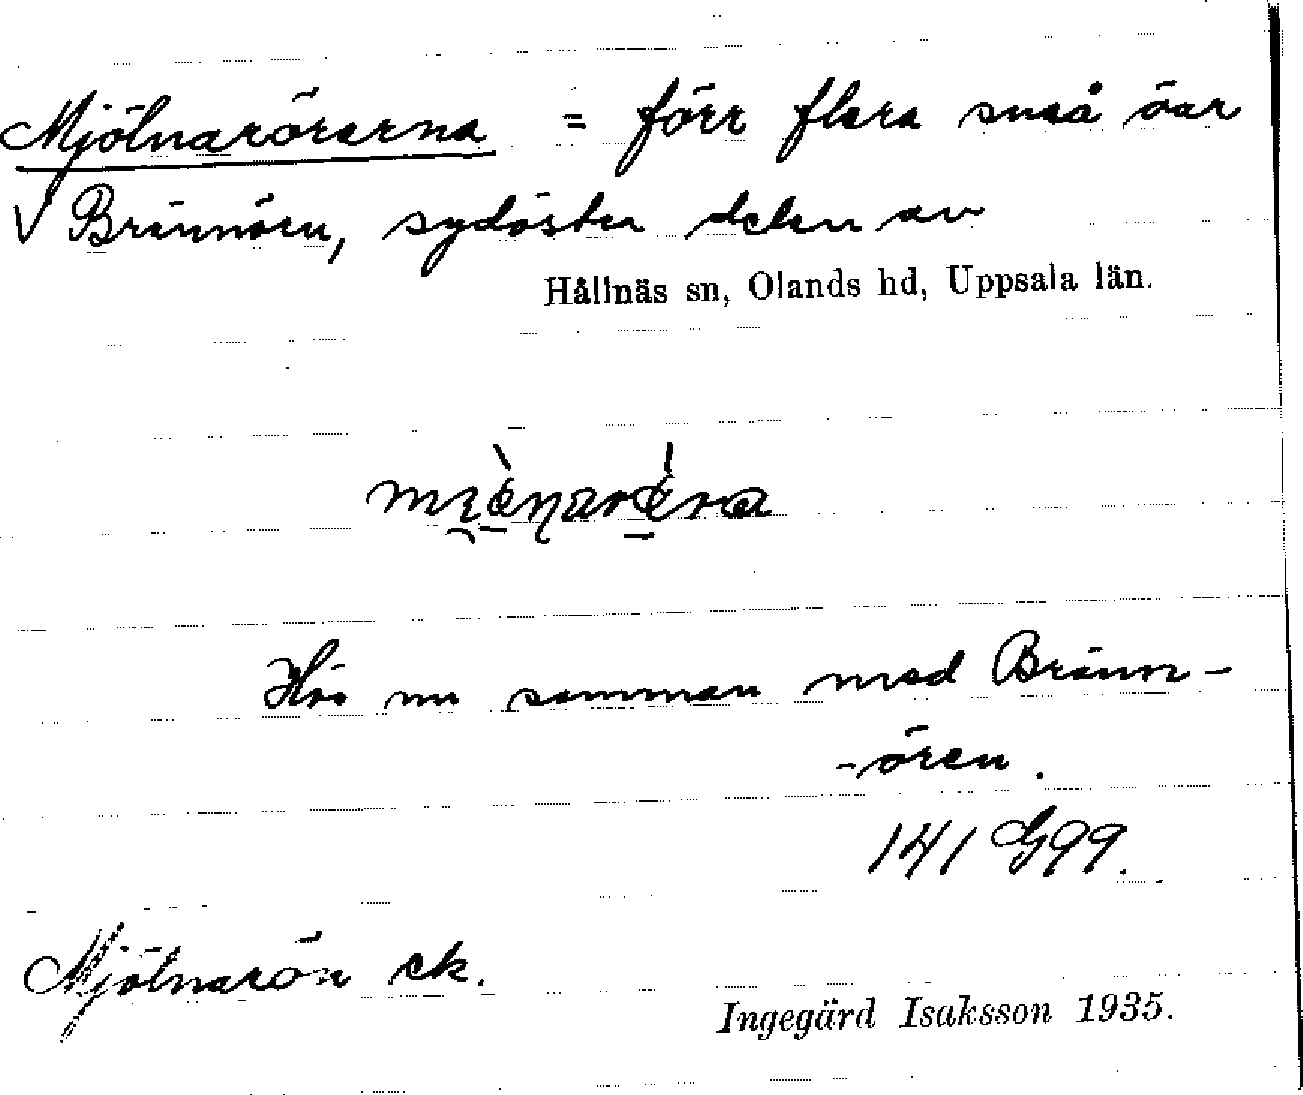 Mjölnarörarna = förr flera små öar
V Brännören, sydöster delen av
Hållnäs sn, Olands hd, Uppsala län.
nu samman med Bränn-
-ören.
141 G99.
Mjölnarön ek.
Ingegärd Isaksson 1935.